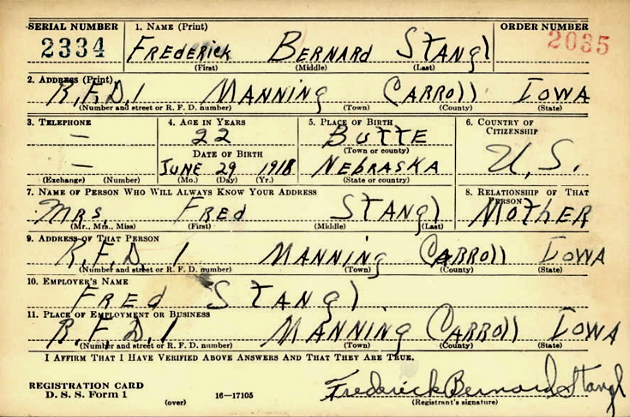 SERIAL NUMBER 1. NAME (Print) ORDER NUMBER
2334 FREDERICK BERNARD STANGL 2035
(First) (Middle) (Last)
2. ADDRESS (Print)
R.F.D. 1 MANNING CARROLL IOWA
(Number and street or R. F. D. number) (Town) (County) (State)
3. TELEPHONE 4. AGE IN YEARS 5. PLACE OF BIRTH 6. COUNTRY OF CITIZENSHIP
— 22 BUTTE
(Town or county)
DATE OF BIRTH
— JUNE 29 1918 NEBRASKA U.S.
(Exchange) (Number) (Mo.) (Day) (Yr.) (State or country)
7. NAME OF PERSON WHO WILL ALWAYS KNOW YOUR ADDRESS 8. RELATIONSHIP OF THAT PERSON
MRS. FRED STANGL MOTHER
(Mr., Mrs., Miss) (First) (Middle) (Last)
9. ADDRESS OF THAT PERSON
R.F.D. 1 MANNING CARROLL IOWA
(Number and street or R. F. D. number) (Town) (County) (State)
10. EMPLOYER'S NAME
FRED STANGL
11. PLACE OF EMPLOYMENT OR BUSINESS
R.F.D. 1 MANNING CARROLL IOWA
(Number and street or R. F. D. number) (Town) (County) (State)
I AFFIRM THAT I HAVE VERIFIED ABOVE ANSWERS AND THAT THEY ARE TRUE.
REGISTRATION CARD
D. S. S. Form 1 (over) 16—17105
Frederick Bernard Stangl
(Registrant's signature)